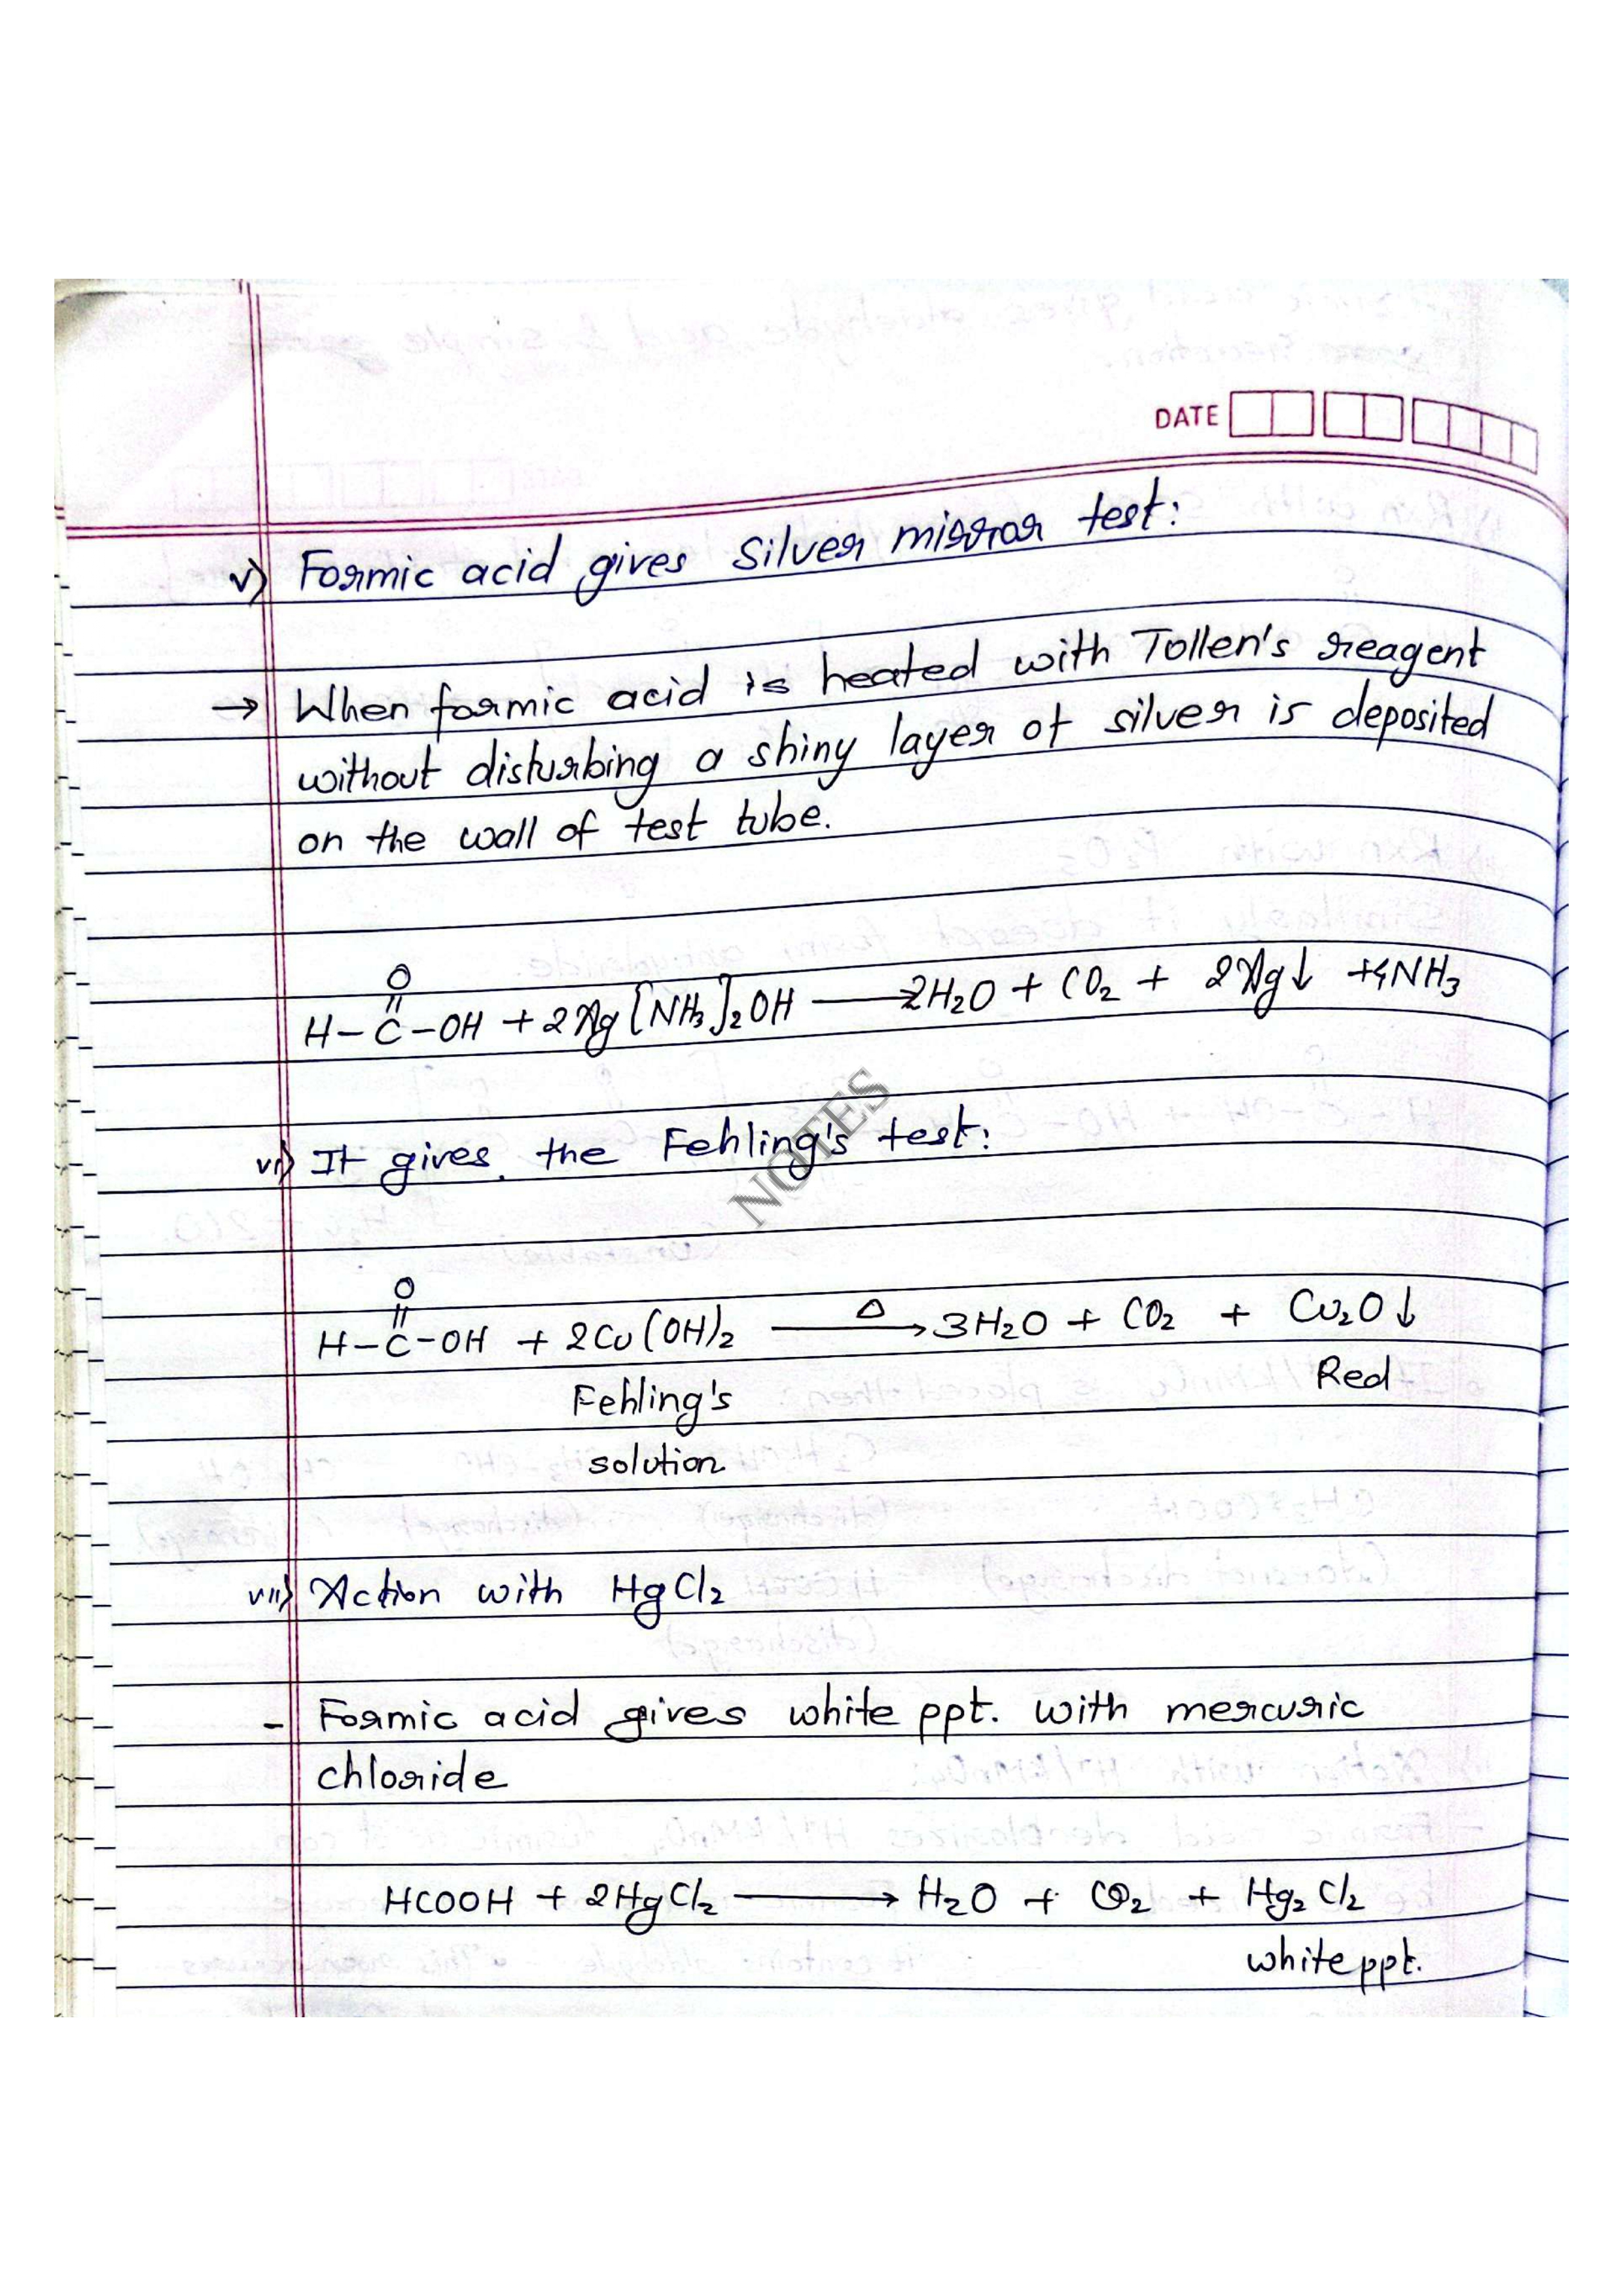 DATE
v) Formic acid gives Silver mirror test:
→ When formic acid is heated with Tollen's reagent
without disturbing a shiny layer of silver is deposited
on the wall of test tube.
O
||
H-C-OH + 2Ag[NH3]2OH ⟶ 2H2O + CO2 + 2Ag↓ + 4NH3
NOTES
vi) It gives the Fehling's test:
O
||
H-C-OH + 2Cu(OH)2 —Δ→ 3H2O + CO2 + Cu2O↓
Fehling's Red
solution
vii) Action with HgCl2
- Formic acid gives white ppt. with mercuric
chloride
HCOOH + 2HgCl2 ⟶ H2O + CO2 + Hg2Cl2
white ppt.